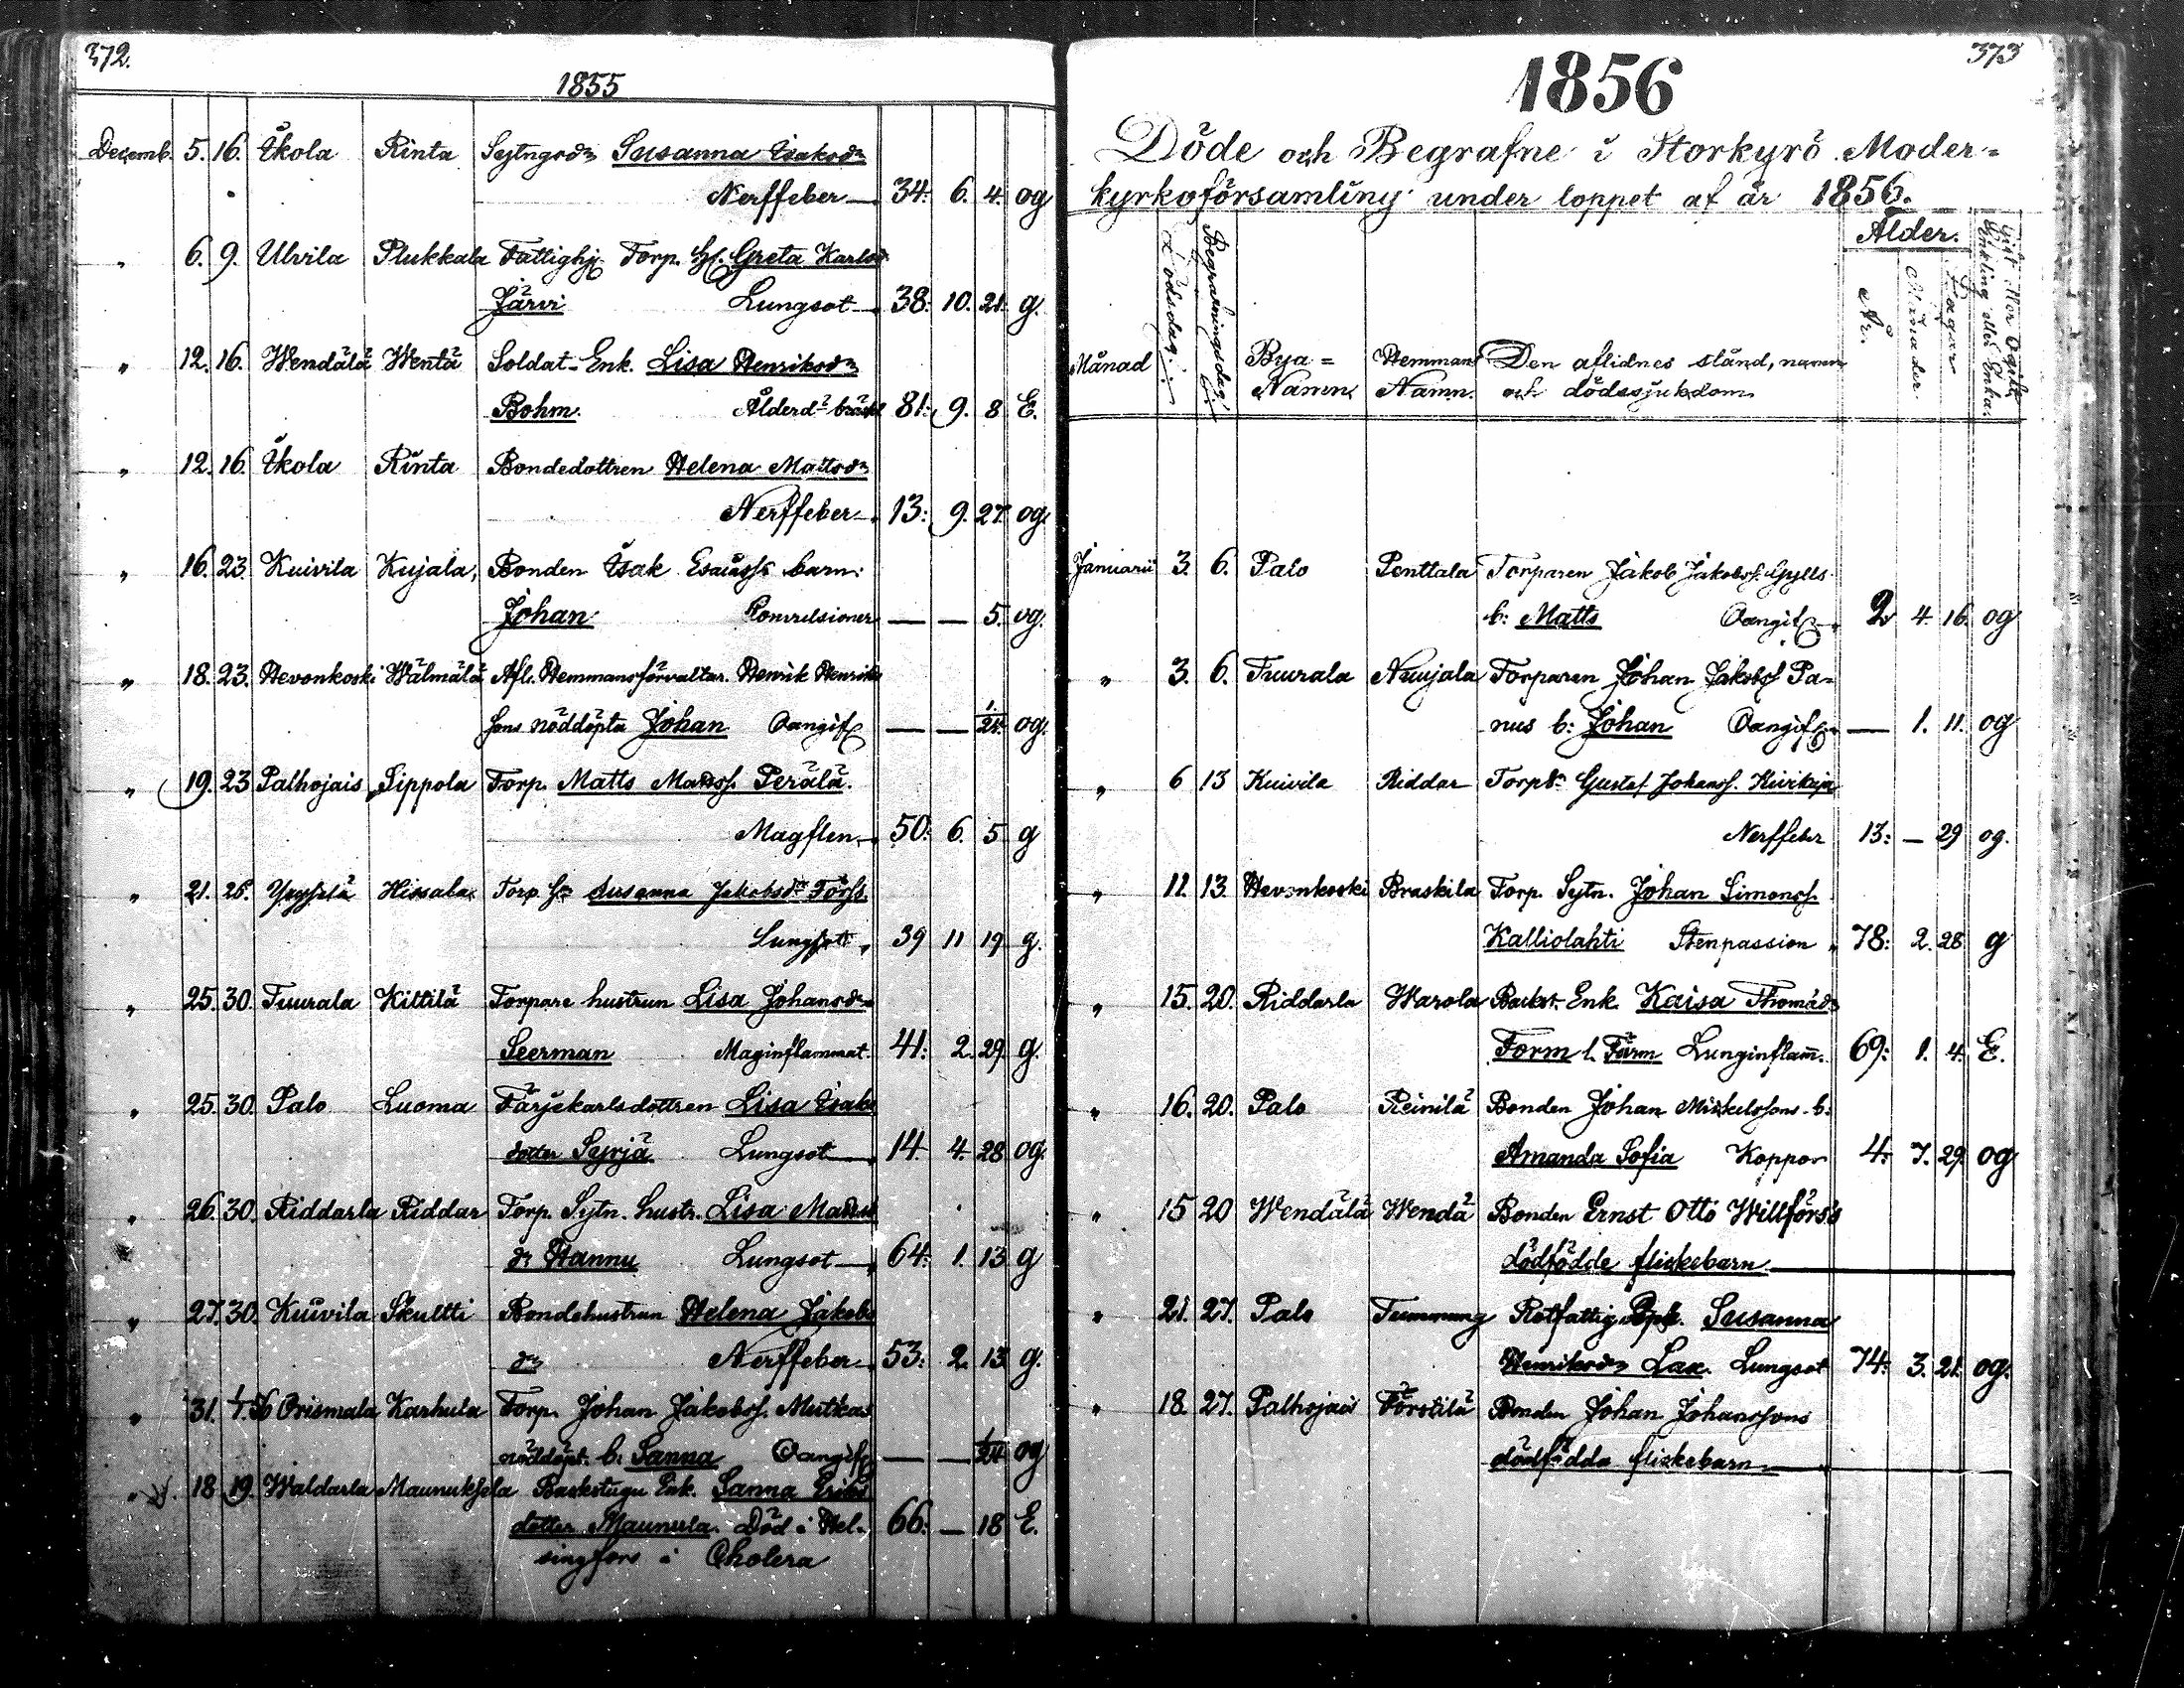 372.
1855
Decemb. 5. 16. Ikola Rinta Sytngsdr Susanna Isaksdr
Nerffeber 34: 6. 4. og
" 6. 9. Ulvila Plukkala Fattighj. Torp. Hr. Greta Karlsd
Järvi Lungsot 38: 10. 21. g.
" 12. 16. Wendälä Wentä Soldat-Enk. Lisa Henriksdr
Bohm. Ålderd. bräckl 81: 9. 8 E.
" 12. 16. Ikola Rinta Bondedottren Helena Mattsdr
Nerffeber 13: 9. 27. og.
" 16. 23. Kuivila Kujala, Bonden Isak Esaiass. barn:
Johan Konvulsioner — — 5. og.
" 18. 23. Hevonkoski Wälmälä Afl. Hemmansförvaltar. Henrik Henriks
sons nöddöpta Johan Oangif — — 1/24. og.
" 19. 23 Palhojais Sippola Torp. Matts Matss. Perälä.
Magflen 50: 6. 5 g
" 21. 26. Hissala Torp. Hr Susanna Jakobsdr Forss.
Lungsott " 39 11 19 g.
" 25. 30. Tuurala Kittilä Torpare hustrun Lisa Johansdr
Seerman Maginflammat. 41: 2. 29. g.
" 25. 30. Palo Luoma Färjekarlsdottren Lisa Isaks
dotter Syrjä Lungsot 14 4. 28 og.
" 26. 30. Riddarla Riddar Torp. Sytn. hustr. Lisa Matts
dr Hannu Lungsot 64: 1. 13 g
" 27. 30. Kuivila Skultti Bondehustrun Helena Jakobs
dr Nerffeber 53: 2. 13. g.
" 31. 1/1.56 Orismala Karhula Torp. Johan Jakobss. Mutkas
nöddöpt. b. Sanna Oangif — — 1/24 og
" 18 19. Waldarla Maunuksela Backstugu Enk. Sanna Eriks
dotter Maunula. Död i Hel-
singfors i Cholera 66: — 18 E.
373
1856
Döde och Begrafne i Storkyrö Moder=
kyrkoförsamling under loppet af år 1856.
Månad Dödsdag. Begrafningsdag. Bya= Namn. Hemmans Namn. Den aflidnes stånd, namn
och dödssjukdom Ålder. År. Månader. Dagar Gift eller Ogift, Enkling eller Enka.
Januarii 3. 6. Palo Penttala Torparen Jakob Jakobss. Gylls
b: Matts Oangif 2 4. 16. og
" 3. 6. Tuurala Nuujala Torparen Johan Jakobss Pa=
nus b: Johan Oangif — 1. 11. og
" 6 13 Kuivila Riddar Torpsn Gustaf Johanss. Kivikuja
Nerffeber 13: — 29 og.
" 11. 13. Hevonkoski Braskila Torp. Sytn. Johan Simonss.
Kalliolahti Stenpassion " 78: 2. 28. g
" 15. 20. Riddarla Warola Backst. Enk. Kaisa Thomasd
Form l. Färm Lunginflam. 69: 1. 4. E.
" 16. 20. Palo Reinilä Bonden Johan Mickelssons b:
Amanda Sofia Koppor 4: 7. 29. og
" 15 20 Wendälä Wendä Bonden Ernst Otto Willförs's
dödfödde flickebarn
" 21. 27. Palo Tummung Rotfattig Susanna
Henriksdr Lax. Lungsot 74: 3. 21. og.
" 18. 27. Palhojais Förstilä Bonden Johan Johanssons
dödfödda flickebarn